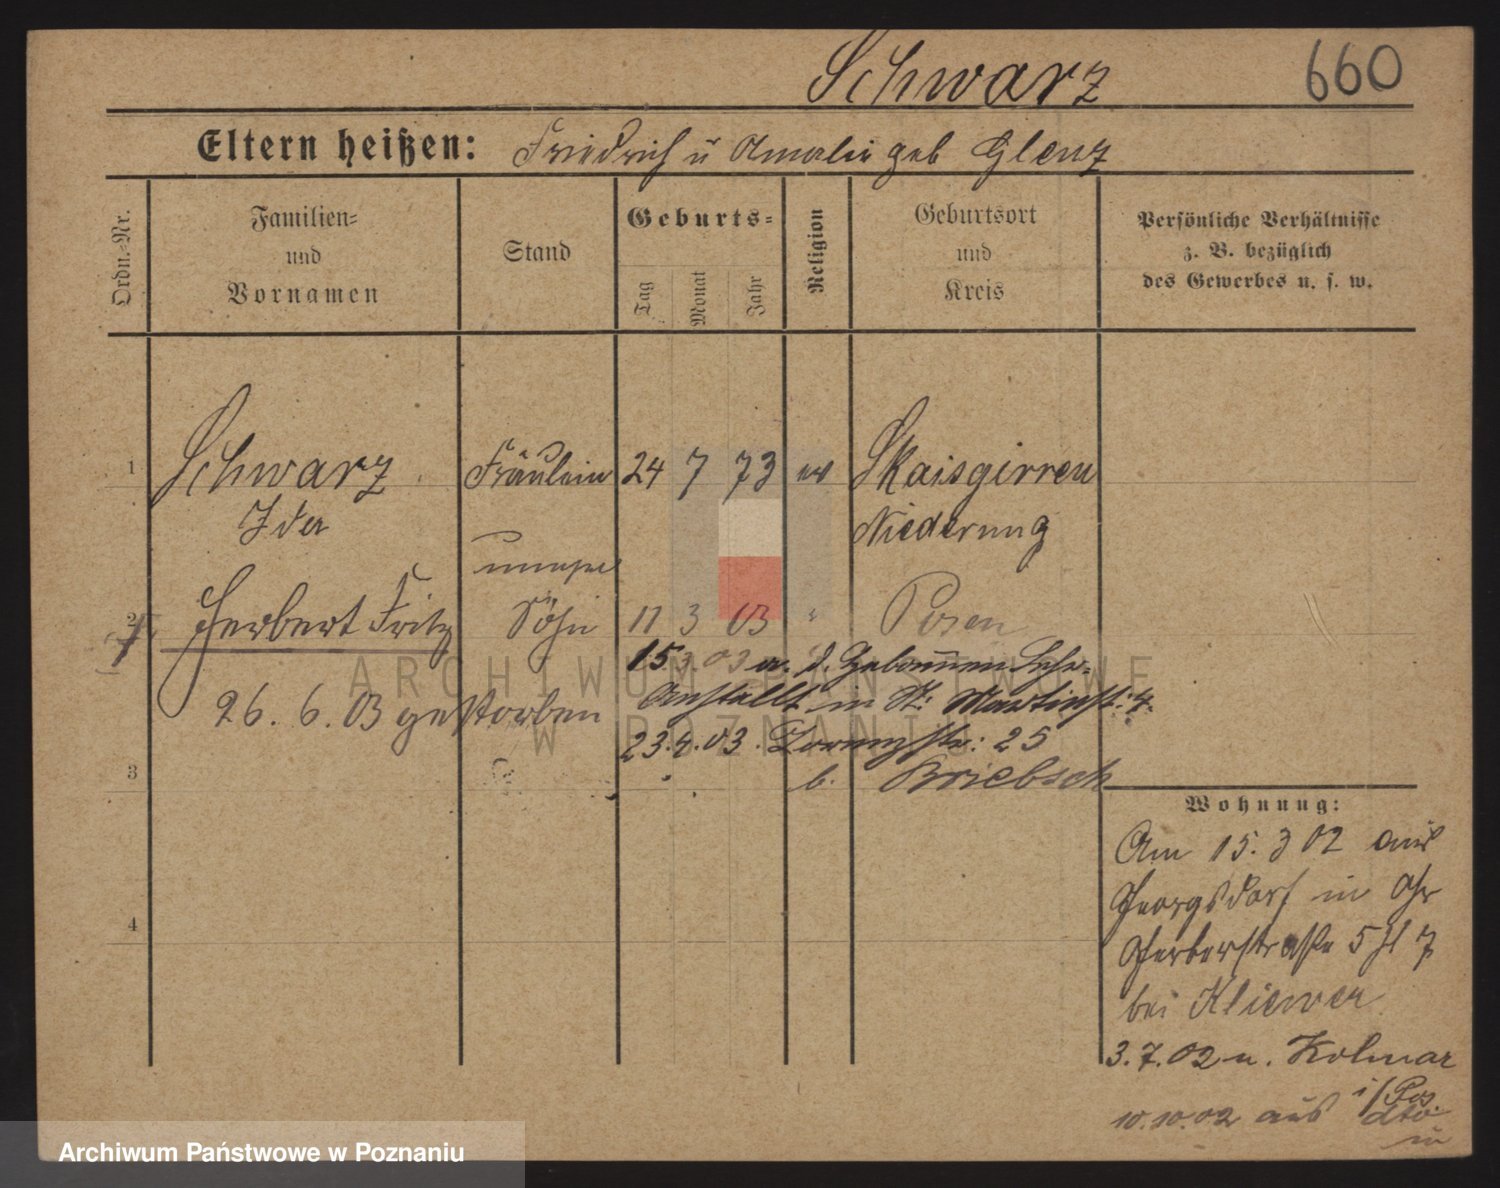 Schwarz 660
Eltern heißen: Friedrich u Amalie geb Glenz
Ordn.-Nr.
Familien-
und
Vornamen
Stand
Geburts-
Tag
Monat
Jahr
Religion
Geburtsort
und
Kreis
Persönliche Verhältnisse
z. B. bezüglich
des Gewerbes u. s. w.
1 Schwarz Fräulein 24 7 73 ev Skaisgirren
Ida Niederung
2 Herbert Fritz Sohn 11 3 03 " Posen
15.3.03 a. d. Hebammen Lehr-
Anstallt in St. Martinstr. 4.
26. 6. 03 gestorben
23.4.03. 25
b. Briebsch
3
4
Wohnung:
Am 15. 3 02 aus
Georgsdorf in
Gerberstraße 5 7
bei Kliewer
3.7.02 n. Kolmar
i/Pos.
10.10.02 aus dto
in
ARCHIWUM PAŃSTWOWE
W POZNANIU
Archiwum Państwowe w Poznaniu